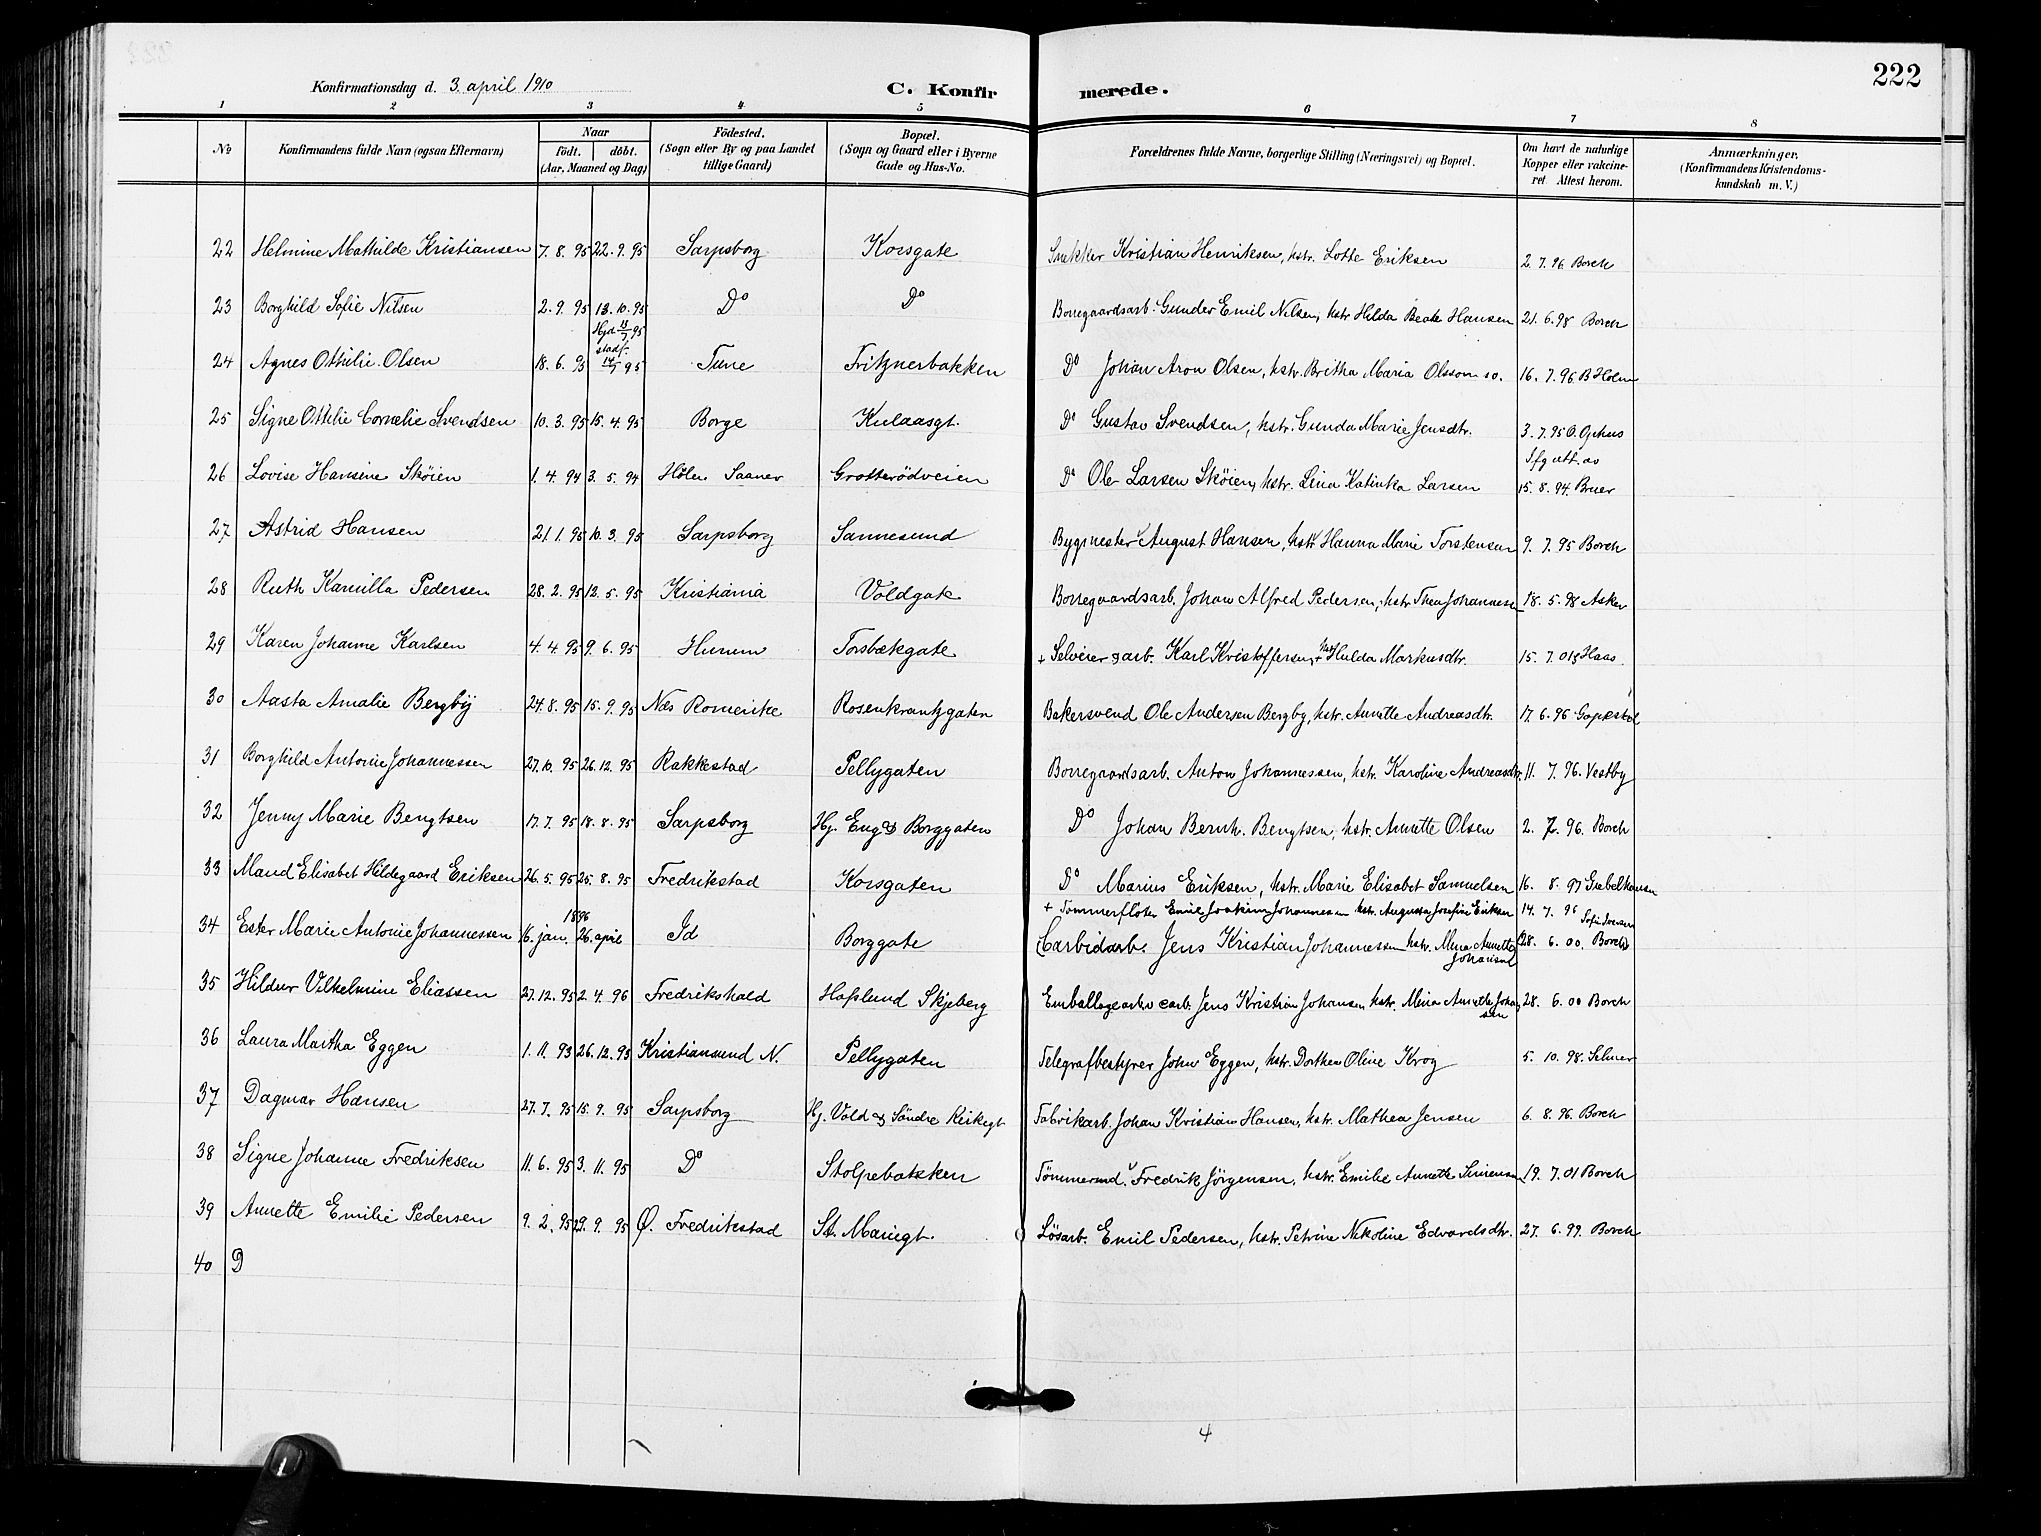 222
Konfirmationsdag d. 3. april 1910 C. Konfirmerede.
1 2 3 4 5 6 7 8
No Konfirmandens fulde Navn (ogsaa Efternavn) Naar födt. döbt. (Aar, Maaned og Dag) Födested. (Sogn eller By og paa Landet tillige Gaard) Bopæl. (Sogn og Gaard eller i Byerne Gade og Hus-No. Forældrenes fulde Navne, borgerlige Stilling (Næringsvei) og Bopæl. Om havt de naturlige Kopper eller vakcineret Attest herom. Anmærkninger. (Konfirmandens Kristendomskundskab m. V.)
22 Helmine Mathilde Kristiansen 7. 8. 95 22. 9. 95 Sarpsborg Korsgate Snekker Kristian Henriksen, hstr. Lotte Eriksen 2. 7. 96 Borch
23 Borghild Sofie Nilsen 2. 9. 95 13. 10. 95 Do Do Borregaardsarb. Gunder Emil Nilsen, hstr Hilda Beate Hansen 21. 6. 98 Borch
24 Agnes Othilie Olsen 18. 6. 93 95 stadf. 95 Tune Fritznerbakken Do Johan Aron Olsen, hstr. Britha Maria Olsson 16. 7. 96. B Holm
25 Signe Othilie Cornelie Svendsen 10. 3. 95 15. 4. 95 Borge Kulaasgt. Do Gustav Svendsen, hstr. Gunda Marie Jensdtr. 3. 7. 95 O. Ophus
26 Lovise Hansine Skøien 1. 4. 94 3. 5. 94 Hölen Saaner Grotterødveien Do Ole Larsen Skøien, hstr. Lina Katinka Larsen Ifg att. av 15. 8. 94. Bruer
27 Astrid Hansen 21. 1. 95 10. 3. 95 Sarpsborg Sannesund Bygmester August Hansen, hstr Hanna Marie Torstensen 9. 7. 95 Borch
28 Ruth Kamilla Pedersen 28. 2. 95 12. 5. 95 Kristiania Voldgate Borregaardsarb. Johan Alfred Pedersen, hstr Thea Johannesen 18. 5. 98 Asker
29 Karen Johanne Karlsen 4. 4. 95 9. 6. 95 Hurum Torsbækgate + Selveier & arb. Karl Kristoffersen, + Hulda Markusdtr. 15. 7. 01 Haas
30 Aasta Amalie Bergby 24. 8. 95 15. 9. 95 Næs Romerike Rosenkrantzgaten Bakersvend Ole Andersen Bergby, hstr. Annette Andreasdtr. 17. 6. 96
31 Borghild Antonie Johannessen 27. 10. 95 26. 12. 95 Rakkestad Pellygaten Borregaardsarb. Anton Johannessen, hstr. Karoline Andreasdtr. 11. 7. 96. Vestby
32 Jenny Marie Bengtsen 17. 7. 95 18. 8. 95 Sarpsborg Hj. Eng & Borggaten Do Johan Bernh. Bengtsen, hstr. Annette Olsen 2. 7. 96. Borch
33 Maud Elisabet Hildegaard Eriksen 26. 5. 95 25. 8. 95 Fredrikstad Korsgaten Do Marius Eriksen, hstr. Marie Elisabet Samuelsen 16. 8. 97
34 Ester Marie Antonie Johannessen 1896 16. jan. 26. april Id Borggate + Tømmerfløter Emil Joakim Johannesen hstr. Augusta Josefine Eriksen 14. 7. 96
(Carbidarb. Jens Kristian Johannessen hstr. Mina Annette Johansen 28. 6. 00. Borch)
35 Hildur Vilhelmine Eliassen 27. 12. 95 2. 4. 96 Fredrikshald Hafslund Skjeberg Emballage arb. Jens Kristian Johansen hstr. Mina Annette Johansen 28. 6. 00 Borch
36 Laura Martha Eggen 1. 11. 93 26. 12. 93 Kristiansund N. Pellygaten Telegrafbestyrer John Eggen, hstr. Dorthea Oline Krog 5. 10. 98. Selmer
37 Dagmar Hansen 27. 7. 95 15. 9. 95 Sarpsborg Hj. Vold & Söndre Kirkegt Fabrikarb. Johan Kristian Hansen, hstr. Mathea Jensen 6. 8. 96. Borch
38 Signe Johanne Fredriksen 11. 6. 95 3. 11. 95 Do Stolpebakken Tömmermd. Fredrik Jörgensen, hstr. Emilie Annette Simensen 19. 7. 01 Borch
39 Annette Emilie Pedersen 9. 2. 95 29. 9. 95 Ø. Fredrikstad St. Mariegt. Løsarb. Emil Pedersen, hstr. Petrine Nikoline Edvardsdtr. 27. 6. 99. Borch
40 D
4